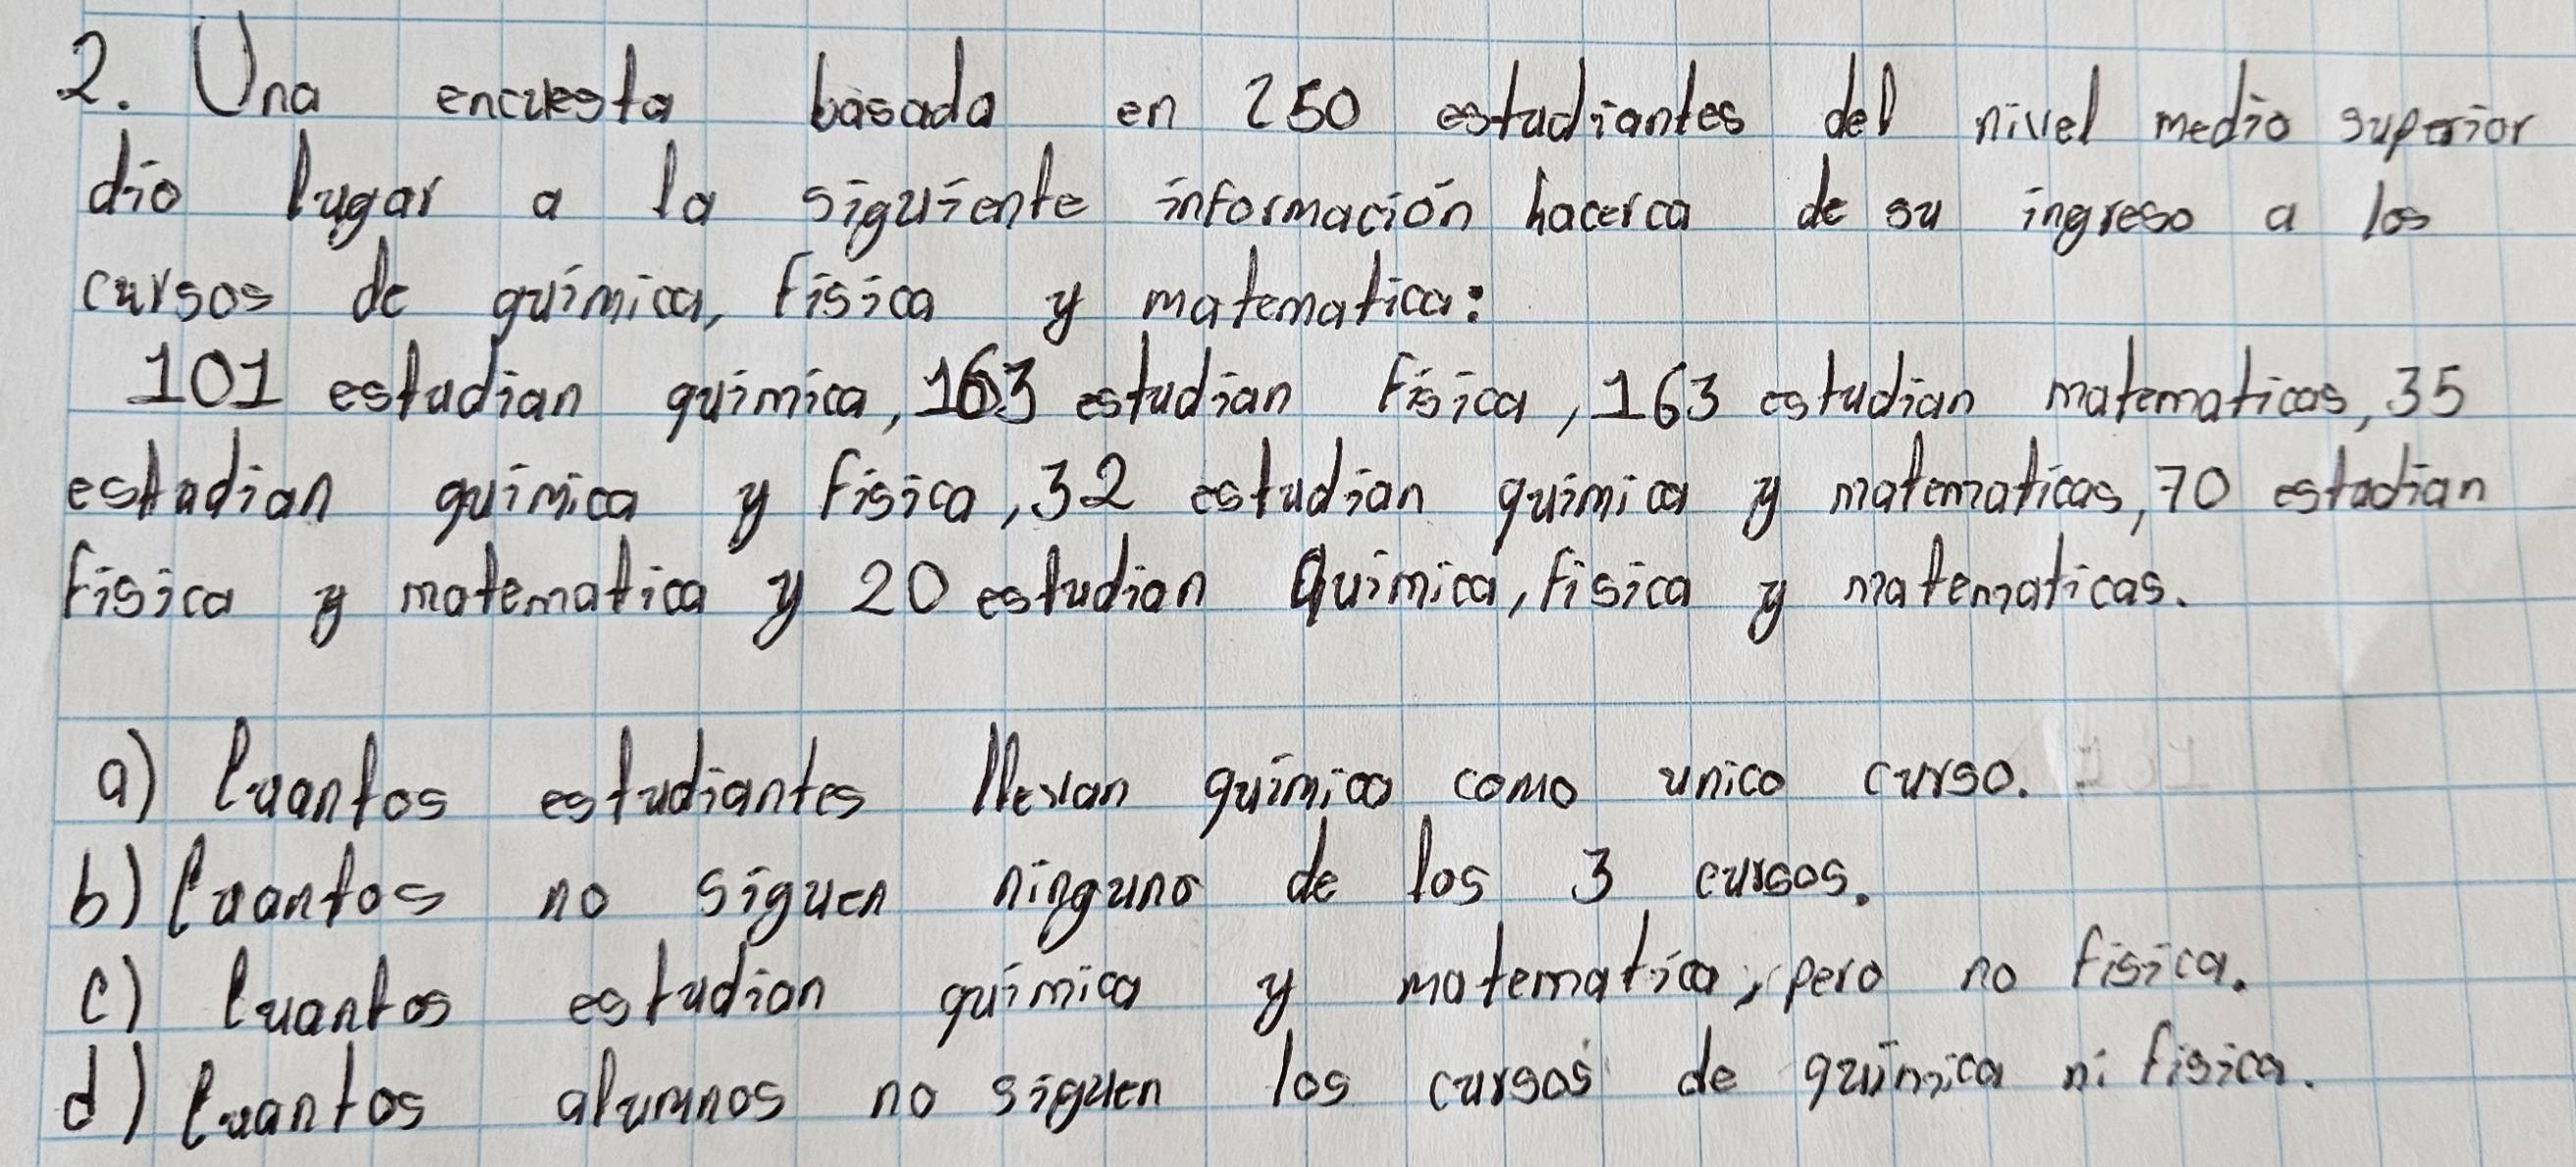 2. Una encuesta basada en 250 estudiantes del nivel medio superior
dio lugar a la siguiente información hacerca de su ingreso a los
cursos de química, física y matematica:
101 estudian química, 163 estudian física, 163 estudian matematicas, 35
estudian química y física, 32 estudian química y matematicas, 70 estudian
física y matematica y 20 estudian Química, física y matematicas.
a) Cuantos estudiantes llevan química como unico curso.
b) Cuantos no siguen ninguno de los 3 cursos.
c) Cuantos estudian química y matematica, pero no física.
d) Cuantos alumnos no siguen los cursos de química ni física.